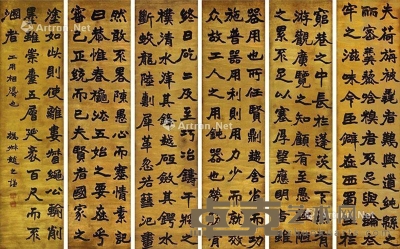 夫荷旃被毳者難與道純綿之
麗密羹藜唅糗者不足與論太
牢之滋味今臣僻在西蜀生於
窮巷之中長於蓬茨之下無有
游觀廣覽之知顧有至愚極陋
之累不足以塞厚望應明旨雖
器用也所任賢則趨舍省而功
施普器用利則用力少而就效
眾故工人之用鈍器也勞筋苦骨
終日矻矻及至巧冶鑄干將之
樸清水淬其鋒越砥斂其鍔水
斷蛟龍陸剸犀革忽若篲氾畫
然敢不略陳愚心而抒情素記
曰恭惟春秋法五始之要在乎
審己正統而已夫賢者國家之
塗如此則使離婁督繩公輸削
墨雖崇臺五層延袤百尺而不
溷者工用相得也 撝叔趙之謙